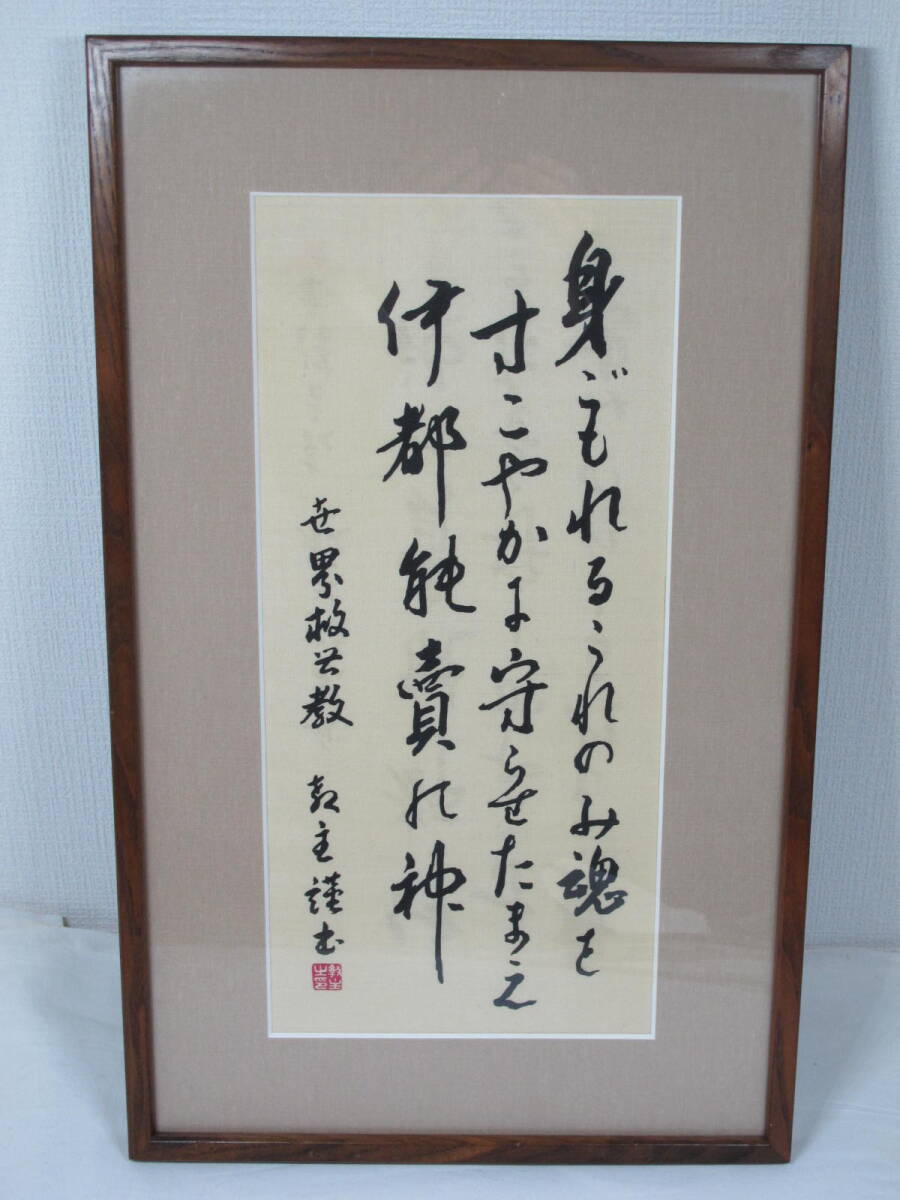 身ごもれるこれのみ魂を
すこやかに守らせたまえ
伊都能賣の神
世界救世教 教主謹書
教主之印